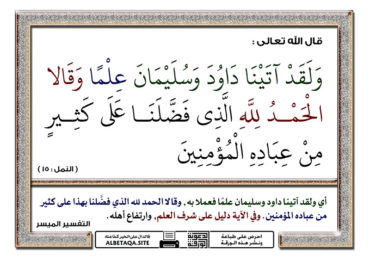 قال الله تعالى :
وَلَقَدْ آتَيْنَا دَاوُدَ وَسُلَيْمَانَ عِلْمًا وَقَالَا
الْحَمْدُ لِلَّهِ الَّذِي فَضَّلَنَا عَلَى كَثِيرٍ
مِنْ عِبَادِهِ الْمُؤْمِنِينَ
( النمل : ١٥ )
أي ولقد آتينا داود وسليمان علمًا فعملا به , وقالا الحمد لله الذي فضّلنا بهذا على كثير
من عباده المؤمنين . وفي الآية دليل على شرف العلم , وارتفاع أهله .
التفسير الميسر
احرص على طباعة
ونشر هذه الورقة
فالدال على الخير كفاعله
ALBETAQA.SITE